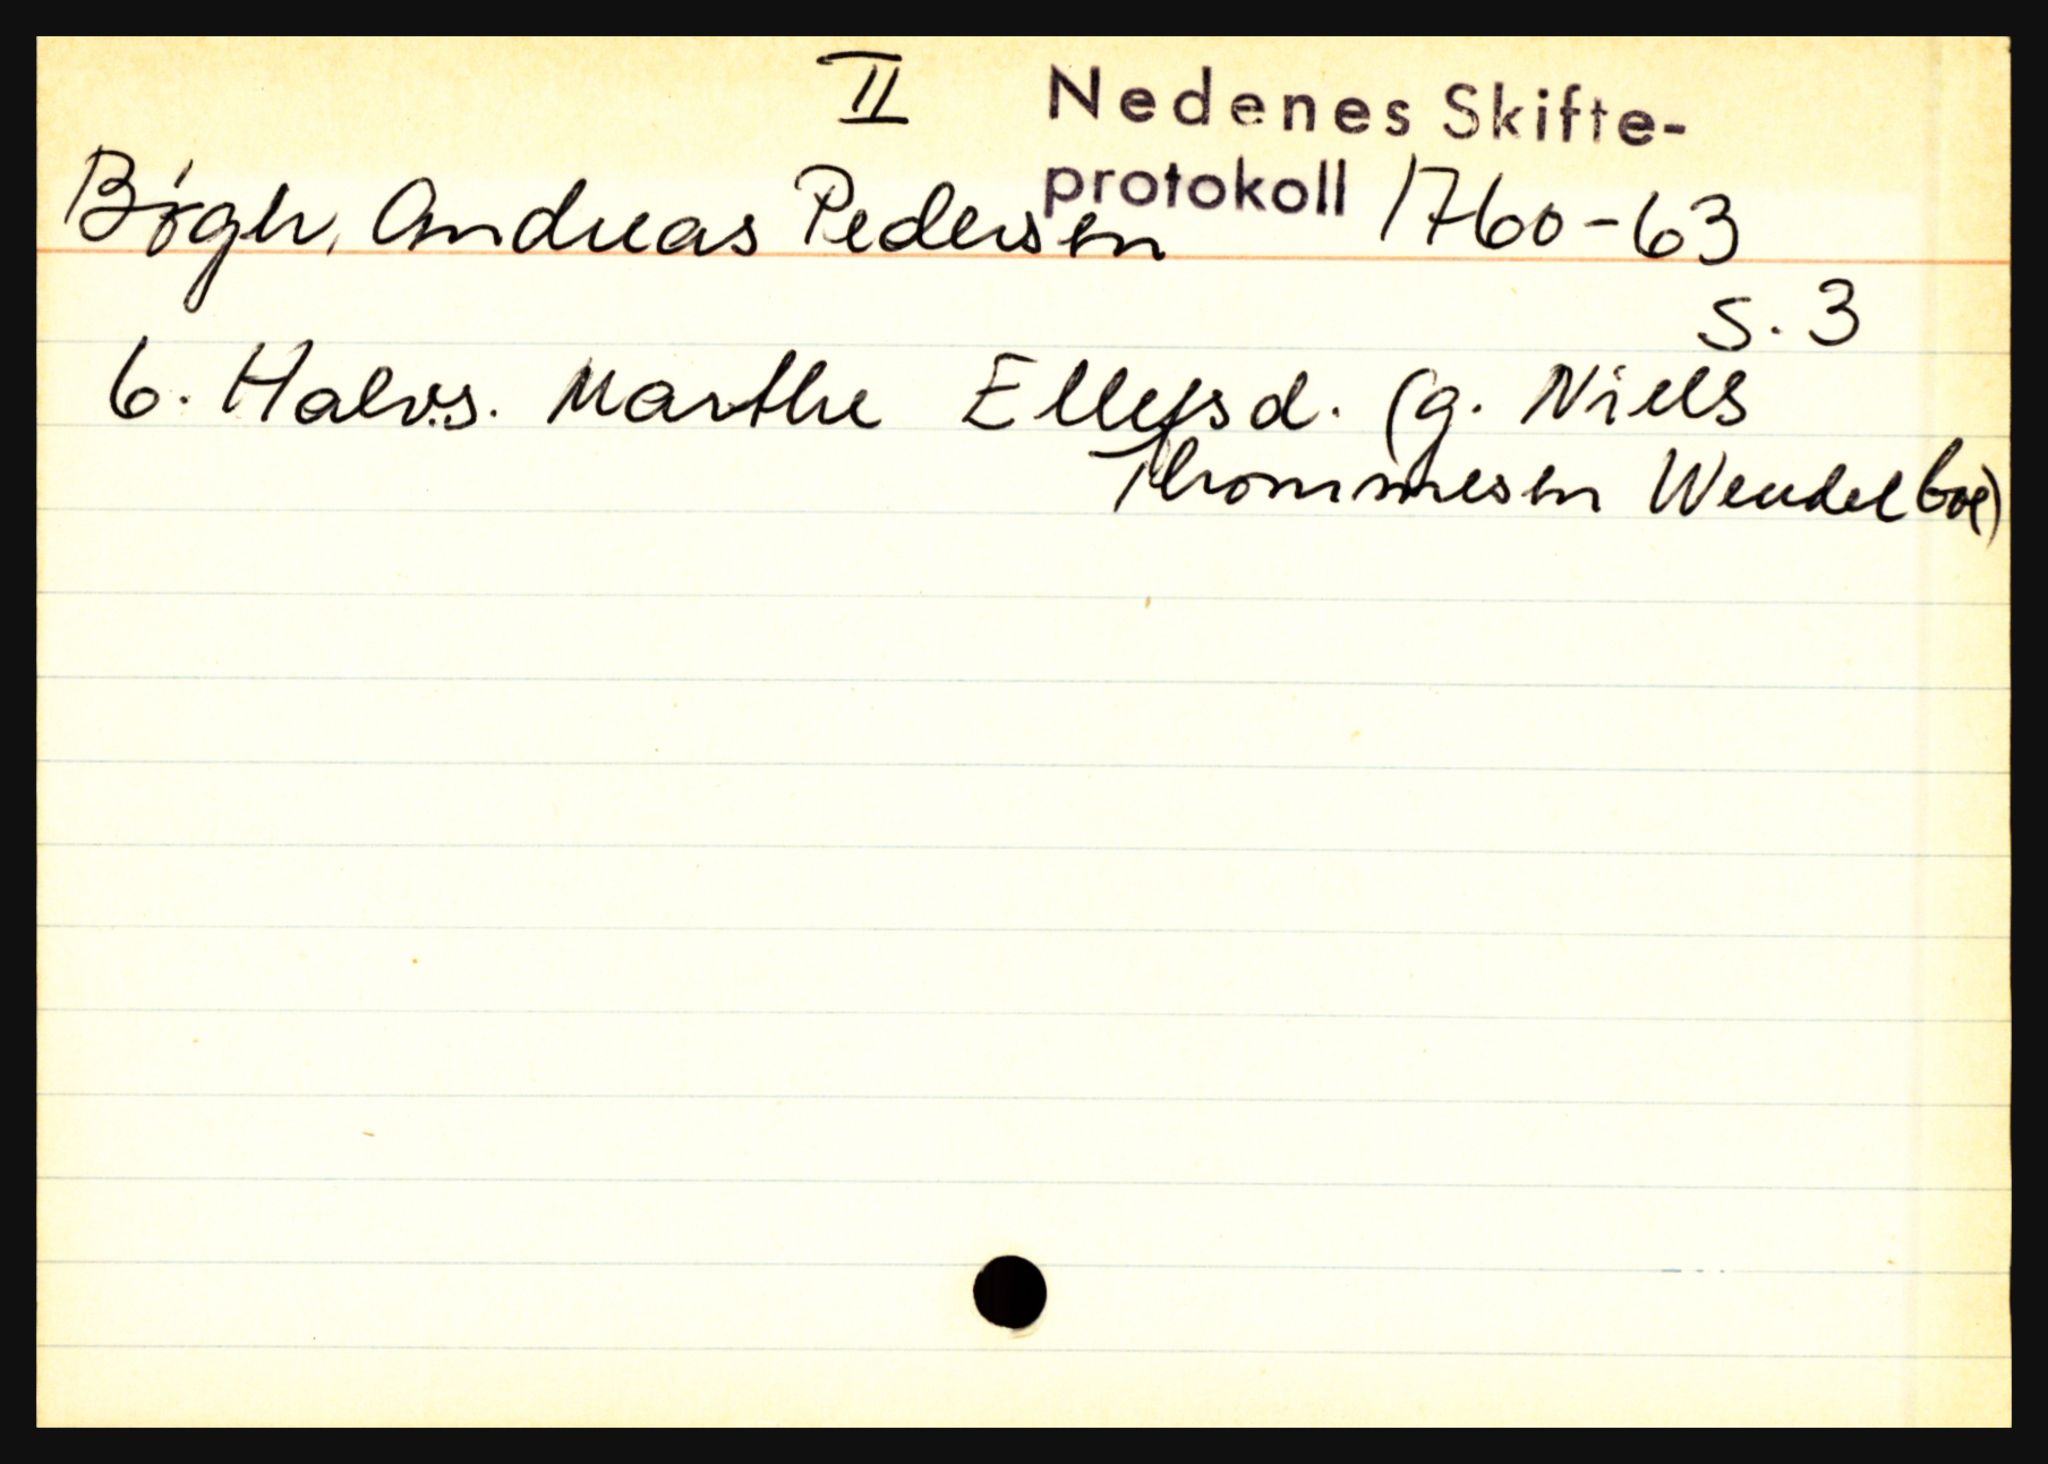 II Nedenes Skifte-
protokoll 1760-63
Bøgh, Andreas Pedersen
S. 3
6. Halvs. Marthe Ellefsd. (g. Niels
Thommesen Wendelboe)